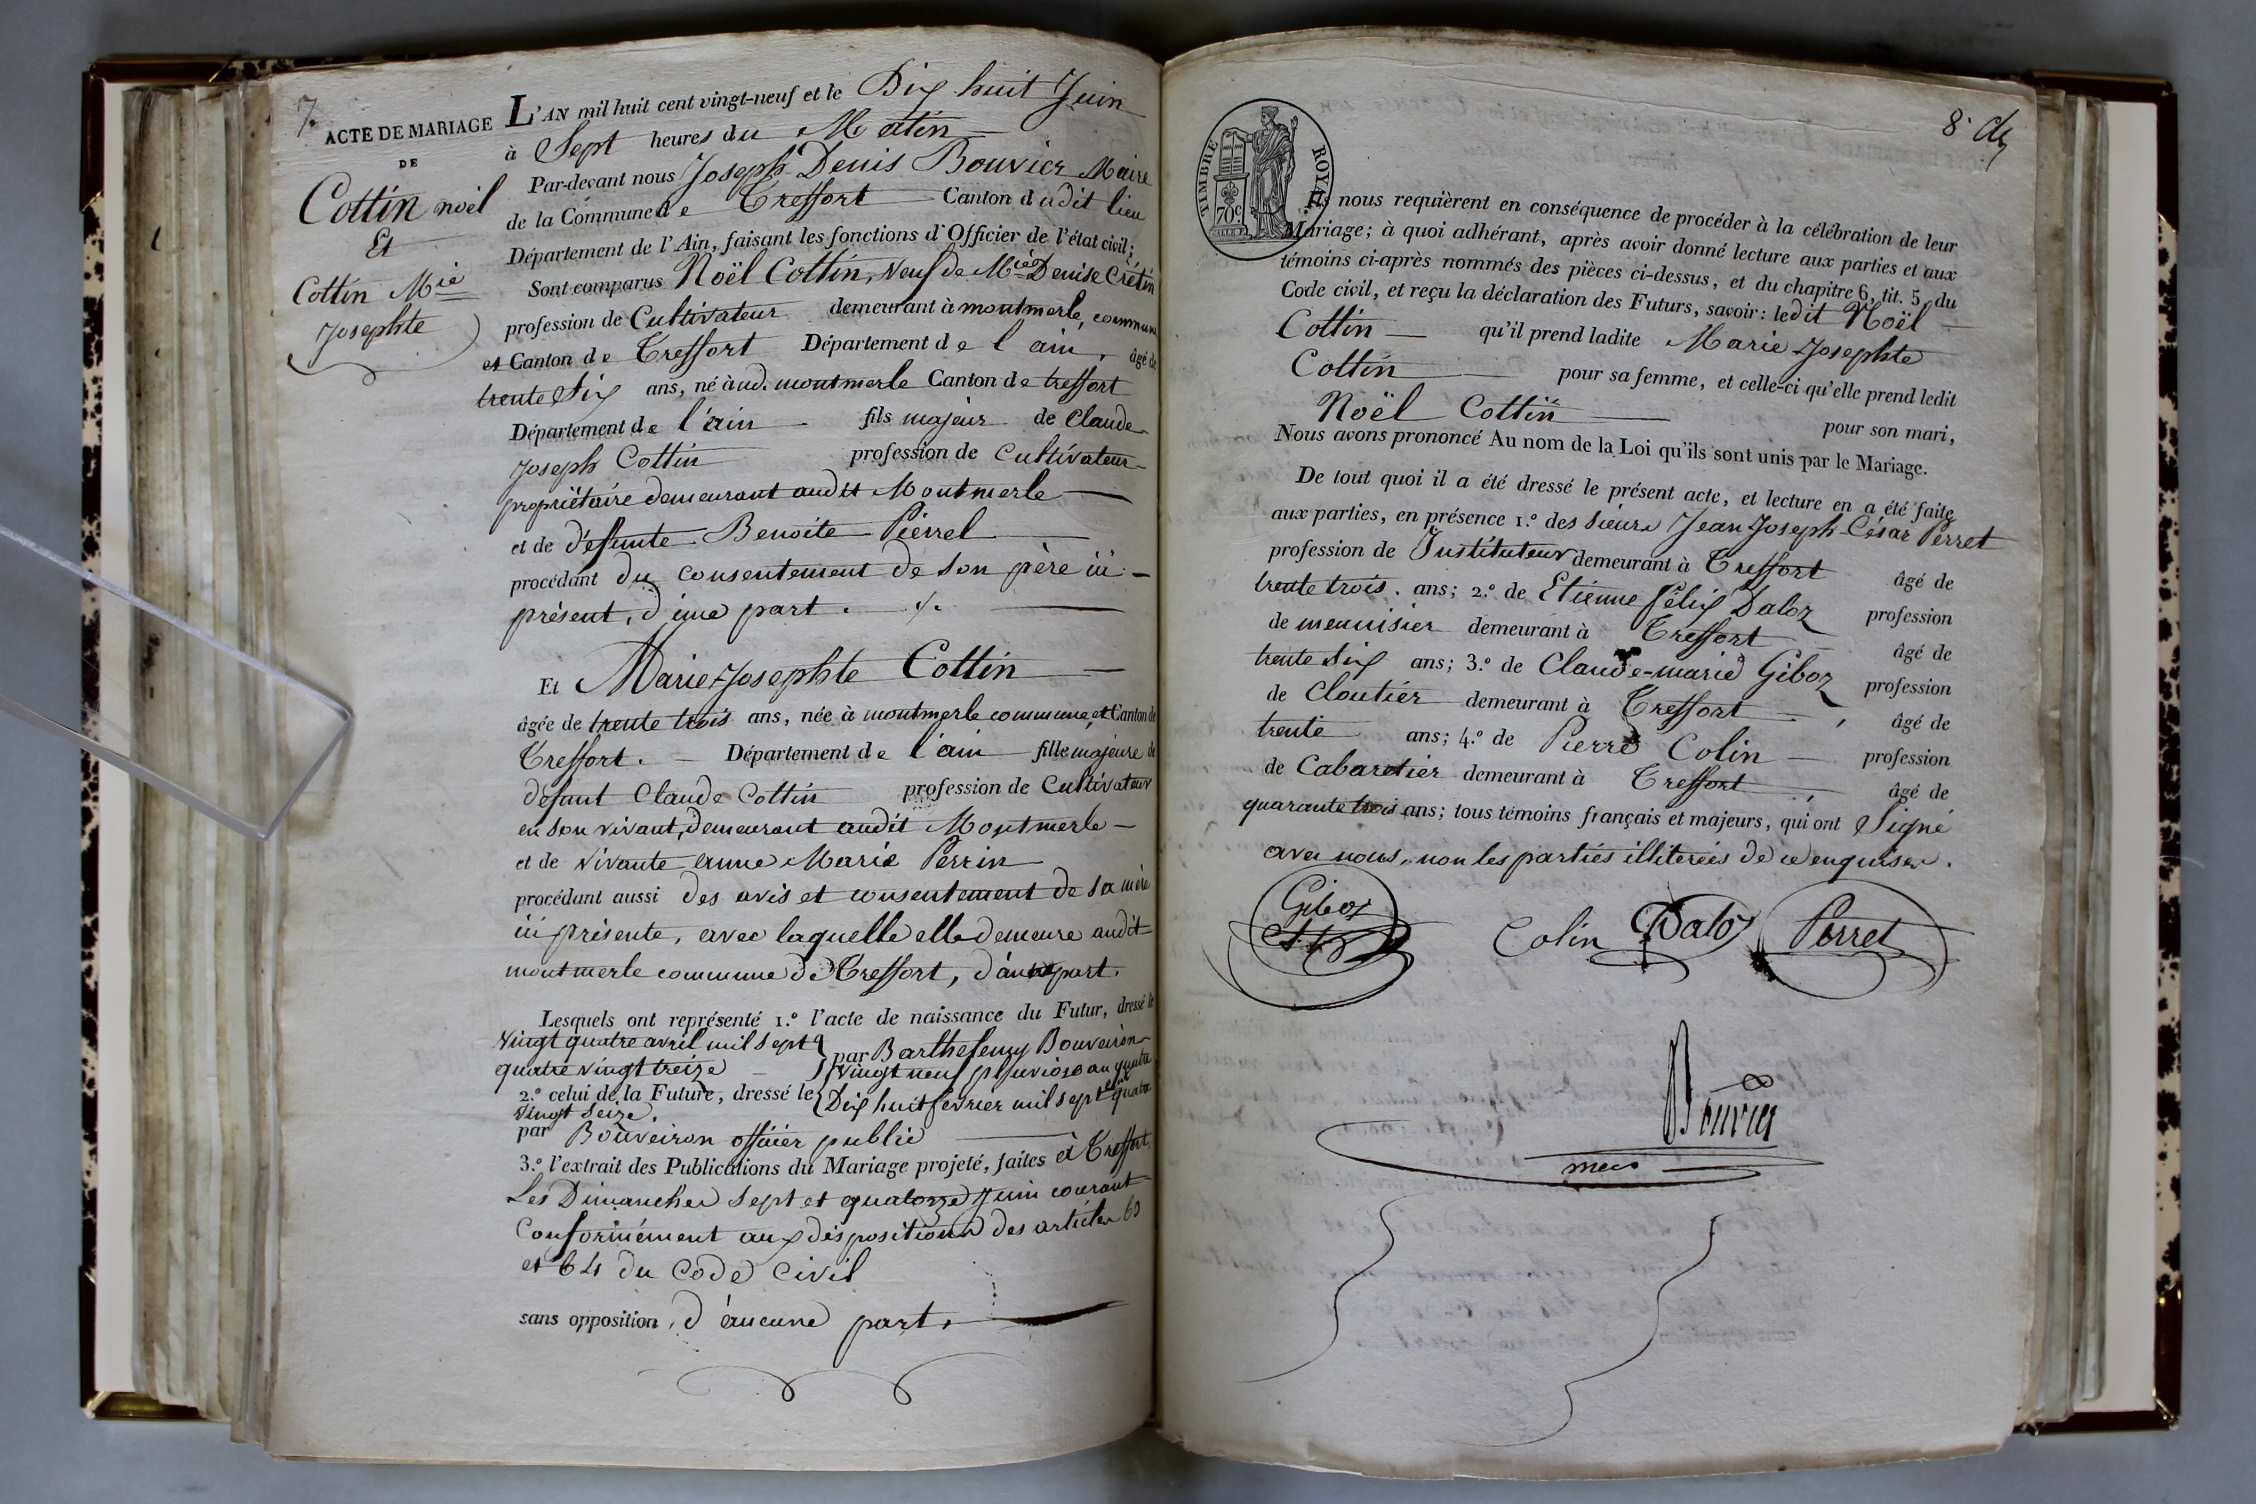 7.
ACTE DE MARIAGE
DE
Cottin noël
Et
Cottin Mie
Josephte
L'AN mil huit cent vingt-neuf et le Dix huit Juin
à Sept heures du Matin
Par-devant nous Joseph Denis Bouvier Maire
de la Commune de Treffort Canton dudit lieu
Département de l'Ain, faisant les fonctions d'Officier de l'état civil;
Sont comparus Noël Cottin, veuf de Mie Denise Crétin
profession de Cultivateur demeurant à montmerle, commune
et Canton de Treffort Département de l'ain, âgé de
trente Six ans, né aud. montmerle Canton de treffort
Département de l'ain fils majeur de Claude
Joseph Cottin profession de Cultivateur
propriétaire demeurant audit Montmerle
et de défunte Benoite Pierrel
procédant du consentement de son père ici
présent, d'une part.
Et Marie Josephte Cottin
âgée de trente trois ans, née à montmerle commune, et Canton de
Treffort. Département de l'ain fille majeure de
défunt Claude Cottin profession de Cultivateur
en son vivant, demeurant audit Montmerle
et de vivante anne Marie Perrin
procédant aussi des avis et consentement de sa mère
ici présente, avec laquelle elle demeure audit
montmerle commune de Treffort, d'autre part.
Lesquels ont représenté 1.° l'acte de naissance du Futur, dressé le
vingt quatre avril mil sept
quatre vingt treize par Barthelemy Bouveiron
2.° celui de la Future, dressé le vingt neuf pluviose an quatre
Dix huit février mil sept cent quatre
vingt seize.
par Bouveiron officier public
3.° l'extrait des Publications du Mariage projeté, faites à Treffort
Les Dimanches sept et quatorze Juin courant
Conformément aux dispositions des articles 63
et 64 du Code Civil
sans opposition d'aucune part.
8.
TIMBRE ROYAL
70c
Ils nous requièrent en conséquence de procéder à la célébration de leur
Mariage; à quoi adhérant, après avoir donné lecture aux parties et aux
témoins ci-après nommés des pièces ci-dessus, et du chapitre 6, tit. 5, du
Code civil, et reçu la déclaration des Futurs, savoir: ledit Noël
Cottin qu'il prend ladite Marie Josephte
Cottin pour sa femme, et celle-ci qu'elle prend ledit
Noël Cottin pour son mari,
Nous avons prononcé Au nom de la Loi qu'ils sont unis par le Mariage.
De tout quoi il a été dressé le présent acte, et lecture en a été faite
aux parties, en présence 1.° des sieurs Jean Joseph César Perret
profession de Instituteur demeurant à Treffort âgé de
trente trois. ans; 2.° de Etienne Félix Daloz profession
de menuisier demeurant à Treffort âgé de
trente six ans; 3.° de Claude-marie Giboz profession
de Cloutier demeurant à Treffort, âgé de
trente ans; 4.° de Pierre Colin profession
de Cabaretier demeurant à Treffort, âgé de
quarante trois ans; tous témoins français et majeurs, qui ont Signé
avec nous, non les parties illiterées de ce enquises.
Giboz
Colin
Daloz
Perret
Bouvier